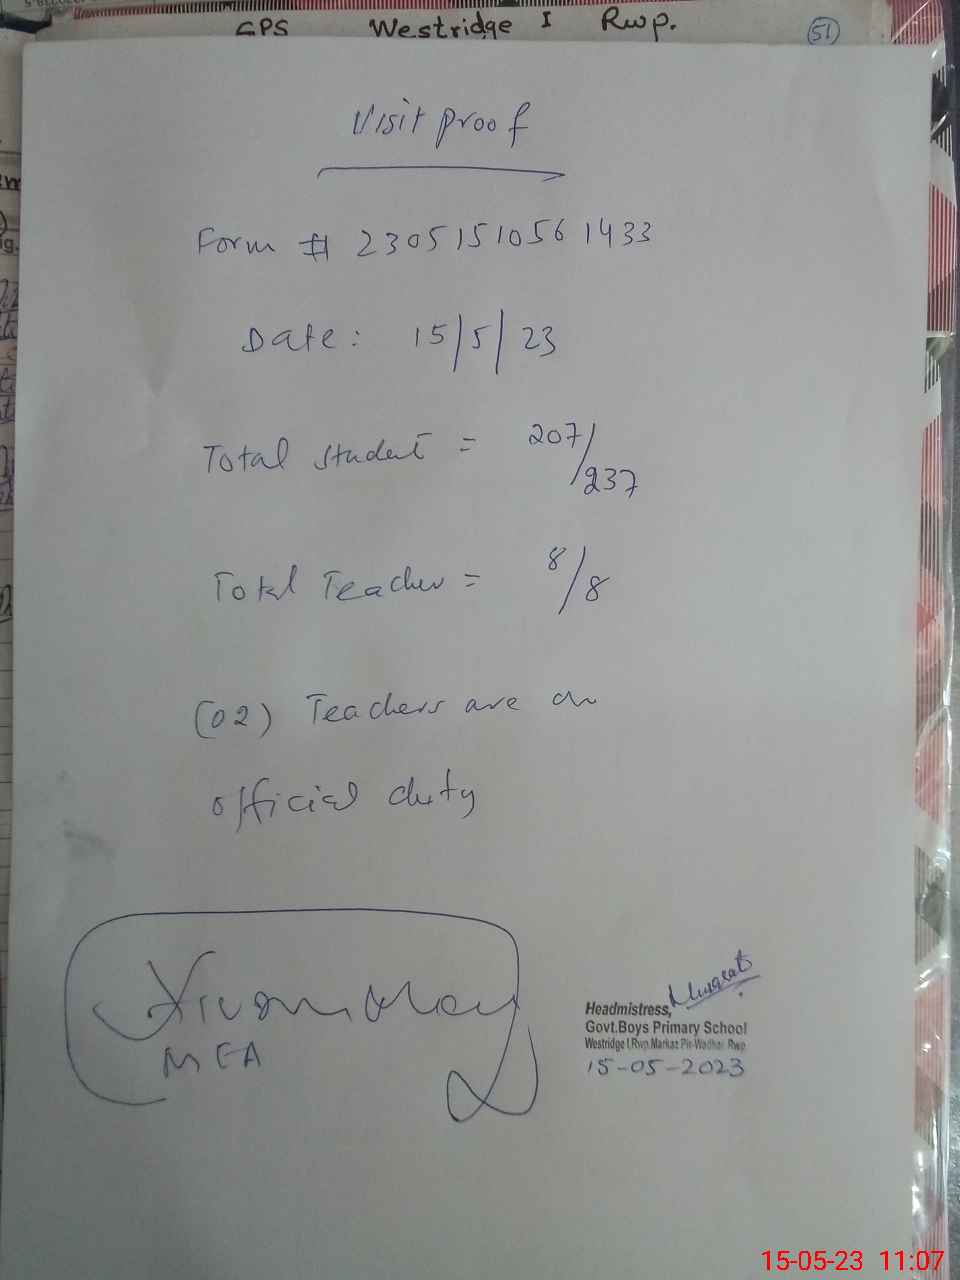 GPS Westridge I Rwp. 51
Visit proof
Form # 2305151056 1433
Date: 15/5/23
Total student = 207/237
Total Teacher = 8/8
(02) Teachers are on
official duty
MEA
Headmistress,
Govt.Boys Primary School
Westridge I,Rwp.Markaz Pir-Wadhai Rwp
15-05-2023
15-05-23 11:07